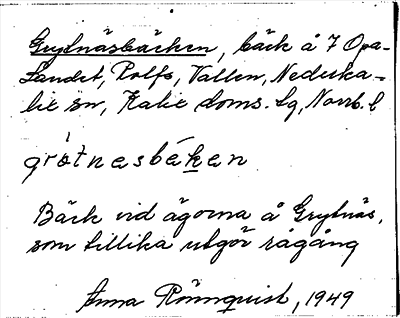 Grytnäsbäcken, bäck å 7 Opa-
Landet, Rolfs, Vallen, Nederka-
lix sn, Kalix doms. Lg, Norrb. l
grötnesbäken
Bäck vid ägorna å Grytnäs,
som tillika utgör rågång
Anna Rönnquist, 1949